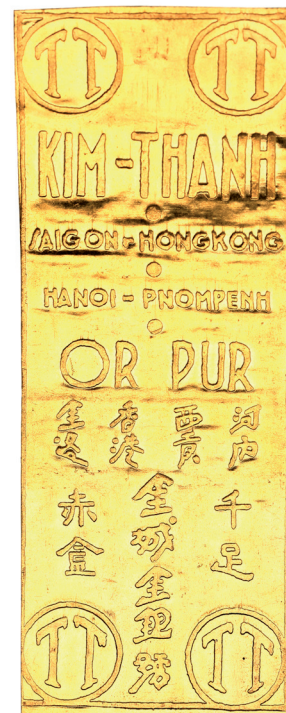 TT TT
KIM-THANH
SAIGON-HONGKONG
HANOI-PNOMPENH
OR PUR
金邊 香港 西貢 河内
赤 金城金 千足
TT TT